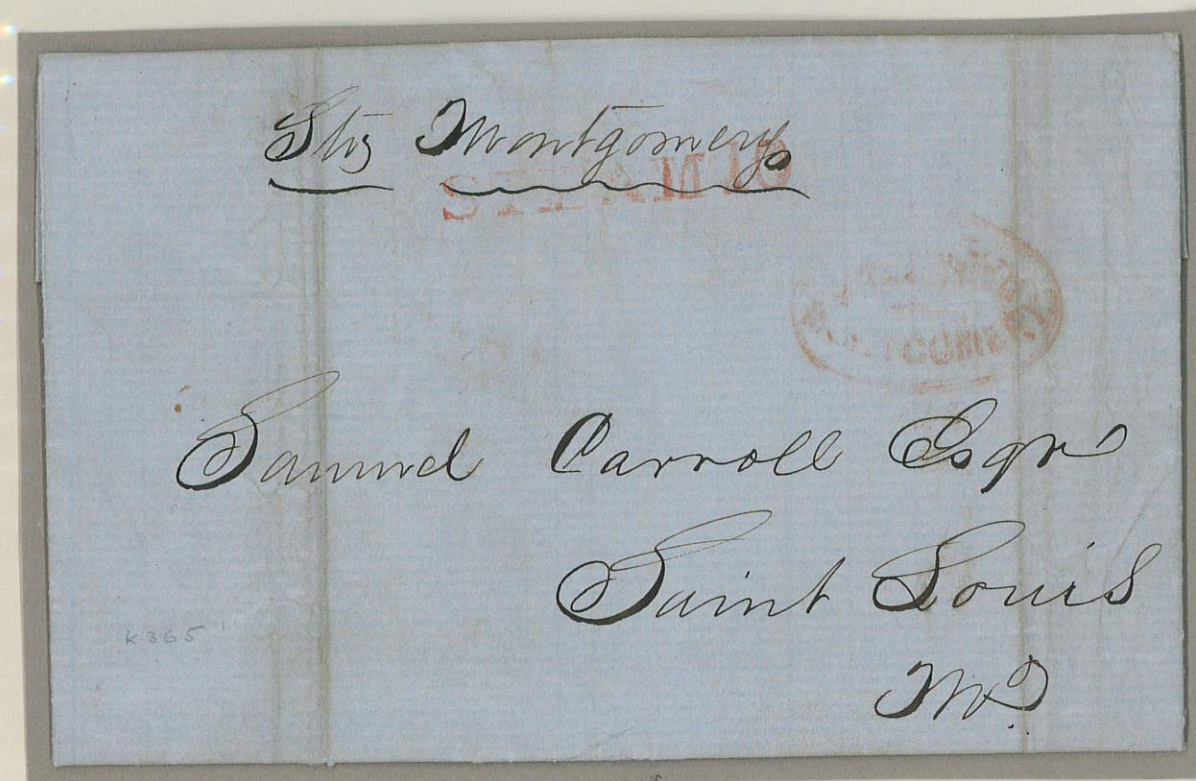 Str Montgomery
MONTGOMERY
Samuel Carroll Esqr
Saint Louis
Mo.
K365